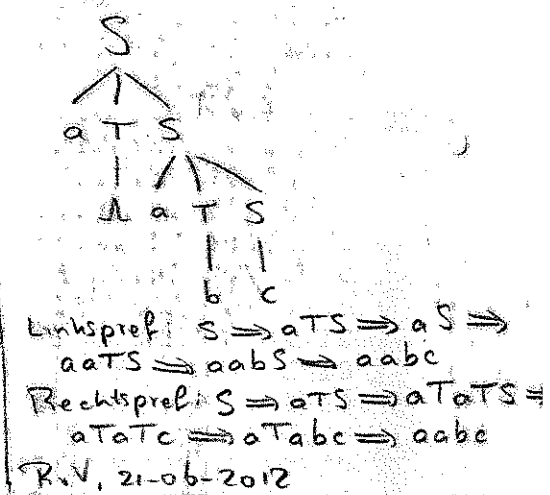 S
a T S
Λ a T S
b c
Linkspref: S ⇒ aTS ⇒ aS ⇒
aaTS ⇒ aabS ⇒ aabc
Rechtspref: S ⇒ aTS ⇒ aTaTS ⇒
aTaTc ⇒ aTabc ⇒ aabc
R.V, 21-06-2012